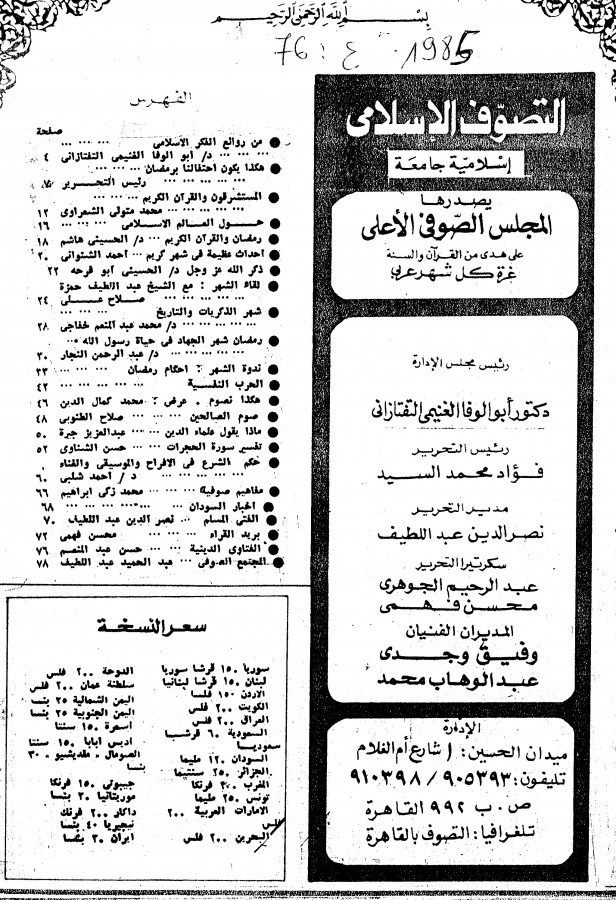 بسم الله الرحمن الرحيم
76 : ع 1985
التصوف الإسلامى
إسلامية جامعة
يصدرها
المجلس الصوفى الأعلى
على هدى من القرآن والسنة
غرة كل شهر عربى
رئيس مجلس الإدارة
دكتور أبو الوفا الغنيمى التفتازانى
رئيس التحرير
فؤاد محمد السيد
مدير التحرير
نصر الدين عبد اللطيف
سكرتيرا التحرير
عبد الرحيم الجوهرى
محسن فهمى
المديران الفنيان
وفيق وجدى
عبد الوهاب محمد
الإدارة
ميدان الحسين: ١ شارع أم الغلام
تليفون: ٩٠٥٣٩٣ / ٩١٠٣٩٨
ص . ب ٩٩٢ القاهرة
تلغرافيا: التصوف بالقاهرة
الفهرس
صفحة
● من روائع الفكر الاسلامى ... ... ...
... ... ... د/ أبو الوفا الغنيمى التفتازانى ٤
● هكذا يكون احتفالنا برمضان ... ... ...
... ... ... ... رئيس التحرير
● المستشرقون والقرآن الكريم ... ... ...
... ... ... ... محمد متولى الشعراوى ١٢
● حول العالم الاسلامى ... ... ... ١٦
● رمضان والقرآن الكريم ... د/ الحسينى هاشم ١٨
● احداث عظيمة فى شهر كريم ... احمد الشنوانى ٢٠
● ذكر الله عز وجل د/ الحسينى أبو فرحه ٢٢
● لقاء الشهر : مع الشيخ عبد اللطيف حمزة
... ... ... ... ... صلاح على ٢٤
● شهر الذكريات والتاريخ ... ... ...
... ... ... د/ محمد عبد المنعم خفاجى ٢٨
● رمضان شهر الجهاد فى حياة رسول الله ...
... ... ... ... د/ عبد الرحمن النجار ٣٠
● ندوة الشهر : احكام رمضان ... ... ٣٣
● الحرب النفسية ... ... ... ... ٤٢
● هكذا نصوم . عرض : محمد كمال الدين ٤٦
● صوم الصالحين ... ... صلاح الطنوبى ٤٨
● ماذا يقول علماء الدين ... عبد العزيز جيرة ٥٠
● تفسير سورة الحجرات ... حسن الشناوى ٥٢
● حكم الشرع فى الافراح والموسيقى والغناء
... ... ... ... د / أحمد شلبى ٦٠
● مفاهيم صوفية ... ... محمد زكى ابراهيم ٦٦
● اخبار السودان ... ... ... ... ٦٨
● الفتى المسلم ... نصر الدين عبد اللطيف ٧٠
● بريد القراء ... ... محسن فهمى ٧٢
● الفتاوى الدينية ... حسن عبد المنعم ٧٦
● المجتمع الصوفى ... عبد الحميد عبد اللطيف ٧٨
سعر النسخة
سوريا ١٥٠ قرشا سوريا
لبنان ١٥٠ قرشا لبنانيا
الاردن ١٥٠ فلسا
الكويت ٢٠٠ فلس
العراق ٢٠٠ فلس
السعودية ٦٠ قرشا
سعوديا
السودان ١٢٠ مليما
الجزائر ٢٥٠ سنتيما
المغرب ٣٠٠ فرنكا
تونس ٢٥٠ مليما
الامارات العربية ٢٠٠
فلس
البحرين ٢٠٠ فلس
الدوحة ٢٠٠ فلس
سلطنة عمان ٢٠٠ فلس
اليمن الشمالية ٢٥ بنسا
اليمن الجنوبية ٢٥ بنسا
اسمرة ١٥٠ سنتا
اديس ابابا ١٥٠ سنتا
الصومال - مقديشيو ٣٠
بنسا
جيبوتى ١٥٠ فرنكا
موريتانيا ٣٠ بنسا
داكار ٢٠٠ فرنك
نيجيريا ٤٠ بنسا
ايران ٣٠ بنسا